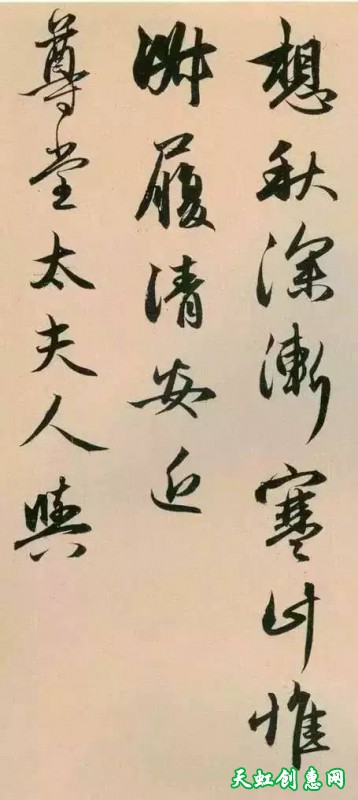 想秋深漸寒計惟
淑履清安近
尊堂太夫人與
天虹创惠网